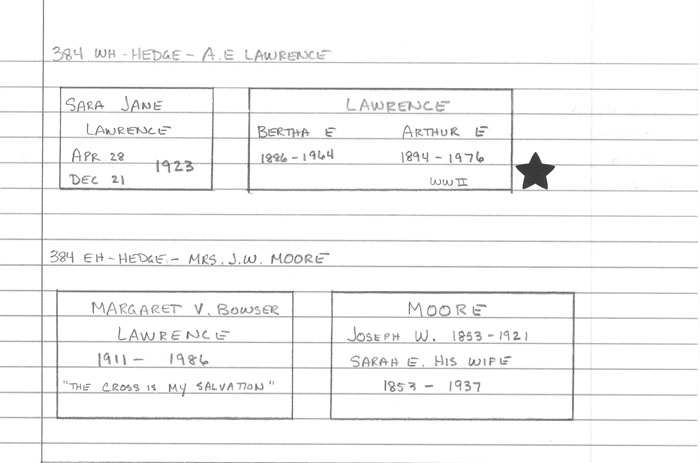 384 WH-HEDGE- A.E LAWRENCE
SARA JANE
LAWRENCE
APR 28
DEC 21
1923
LAWRENCE
BERTHA E ARTHUR E
1886-1964 1894-1976
WWII
384 EH-HEDGE- MRS. J.W. MOORE
MARGARET V. BOWSER
LAWRENCE
1911- 1986
"THE CROSS IS MY SALVATION"
MOORE
JOSEPH W. 1853-1921
SARAH E. HIS WIFE
1853 - 1937